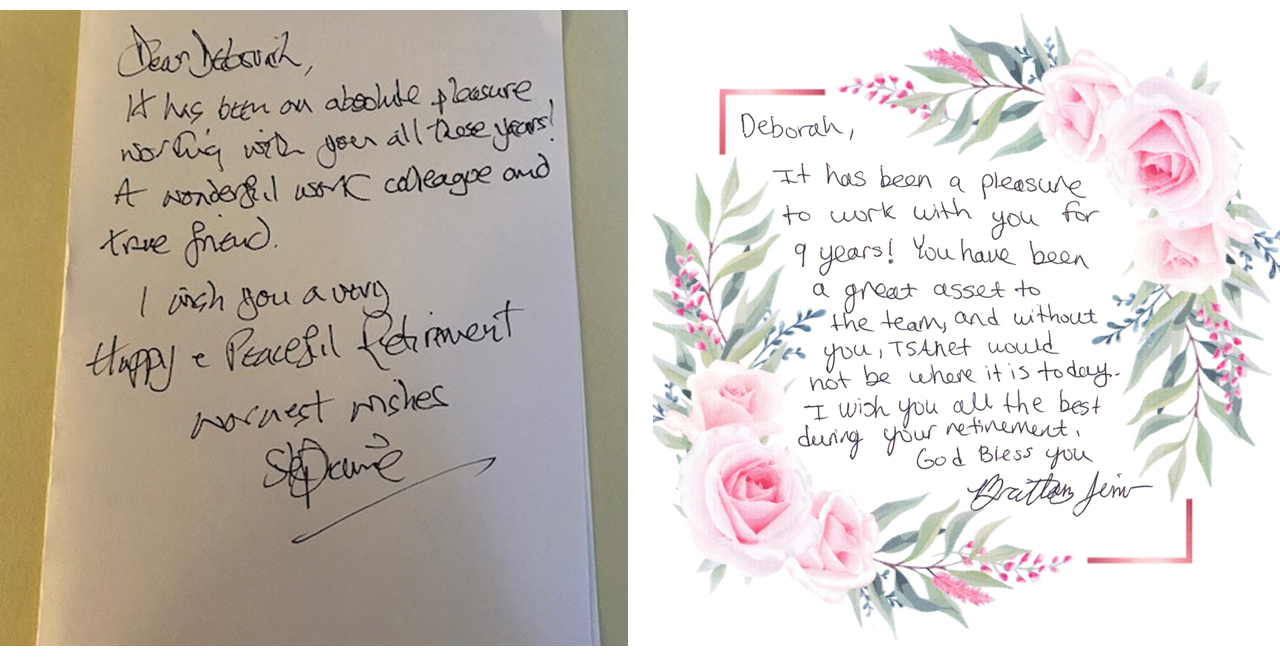 Dear Deborah,
It has been an absolute pleasure
working with you all these years!
A wonderful work colleague and
true friend.
I wish you a very
Happy & Peaceful Retirement
warmest wishes
Stephanie
Deborah,
It has been a pleasure
to work with you for
9 years! You have been
a great asset to
the team, and without
you, TSANet would
not be where it is today.
I wish you all the best
during your retirement.
God Bless you